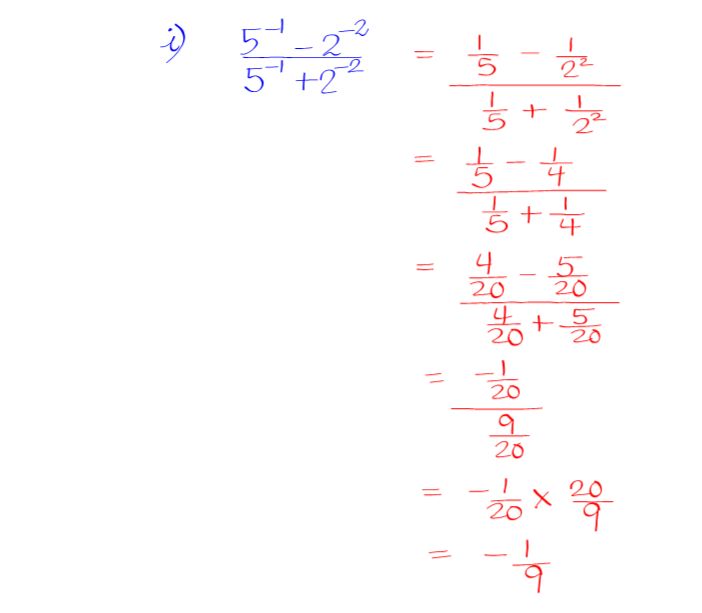 i) \frac{5^{-1} - 2^{-2}}{5^{-1} + 2^{-2}} = \frac{\frac{1}{5} - \frac{1}{2^2}}{\frac{1}{5} + \frac{1}{2^2}}
= \frac{\frac{1}{5} - \frac{1}{4}}{\frac{1}{5} + \frac{1}{4}}
= \frac{\frac{4}{20} - \frac{5}{20}}{\frac{4}{20} + \frac{5}{20}}
= \frac{-\frac{1}{20}}{\frac{9}{20}}
= -\frac{1}{20} × \frac{20}{9}
= -\frac{1}{9}